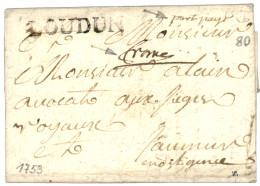 port payé
LOUDUN
Monsieur
80
franc
A Monsieur alain
avocat aux sieges
royaux
A Saumur
en diligence
1753